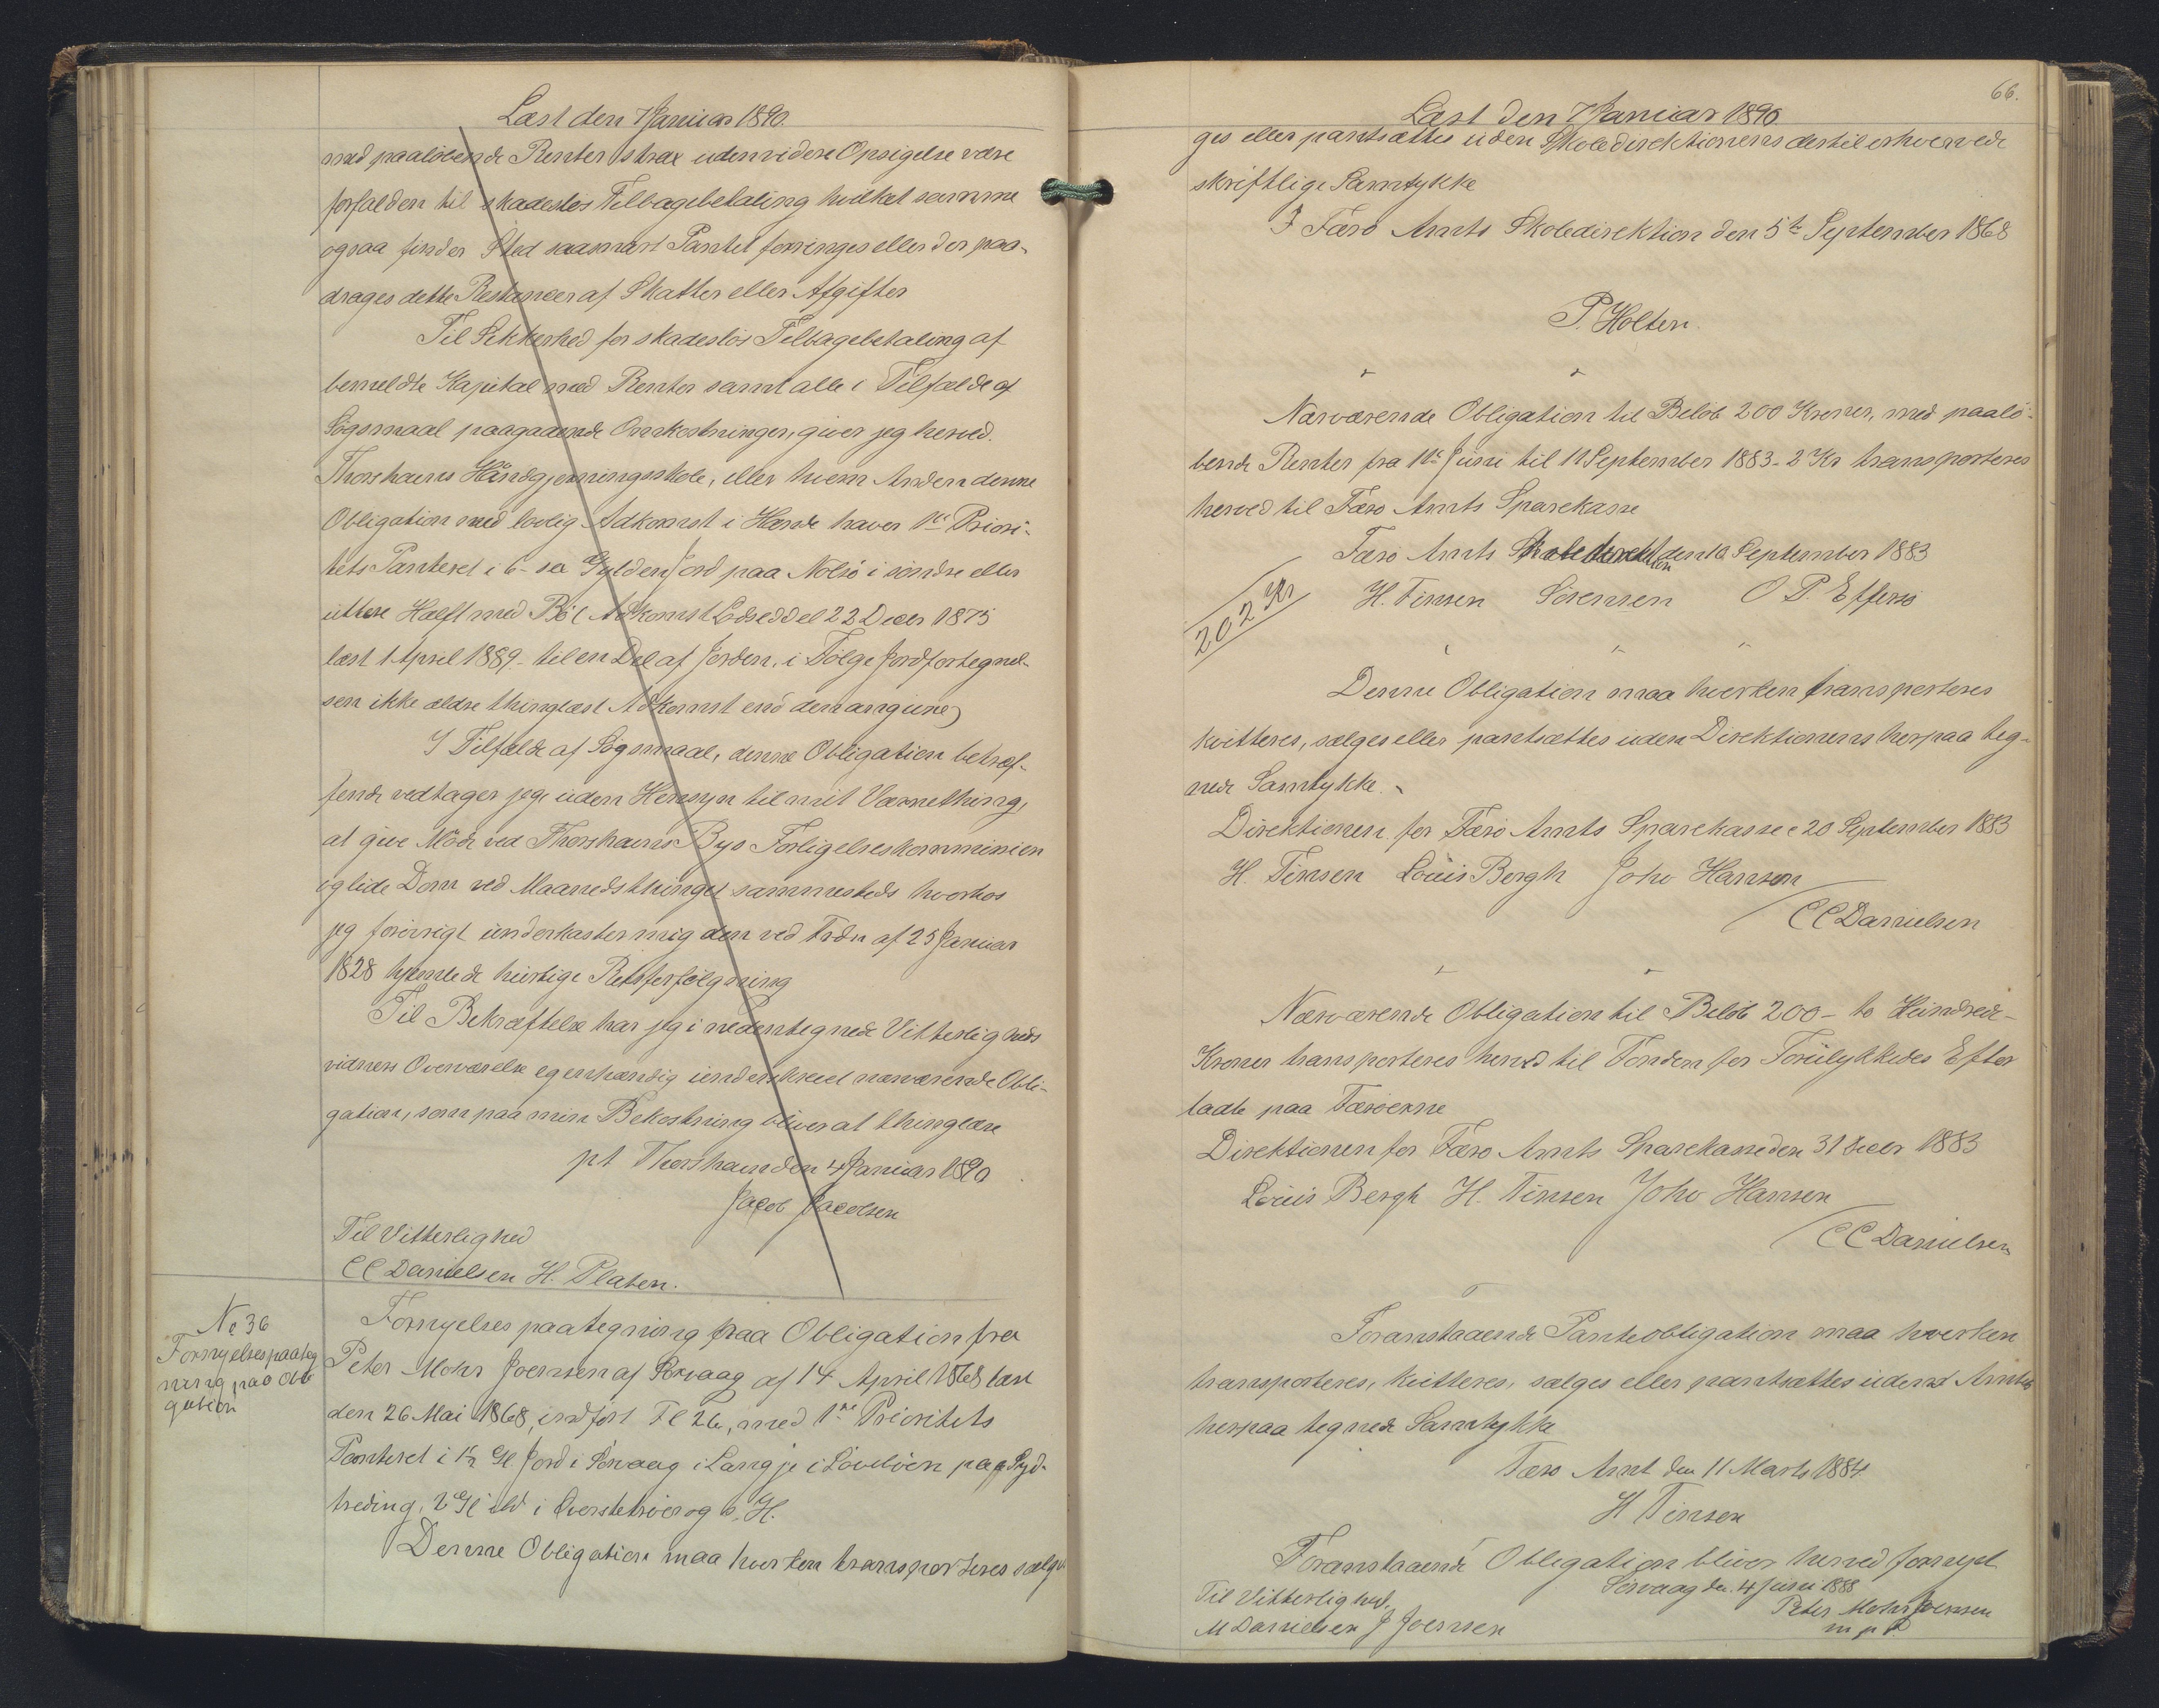 Læst den 7 Januar 1890.
med paaløbende Renter strax uden videre Opsigelse være
forfalden til skadesløs Tilbagebetaling hvilket samme
ogsaa finder Sted saasnart Pantet forringes eller der paa-
drages dette Restancer af Skatter eller Afgifter
Til Sikkerhed for skadesløs Tilbagebetaling af
bemeldte Kapital med Renter samt alle i Tilfælde af
Søgsmaal paagaaende Omkostninger, giver jeg herved
Thorshavns Håndgjerningsskole, eller hvem Anden denne
Obligation med lovlig Adkomst i Hænde haver 1ste Priori-
tets Panteret i 6 - sex Gylden Jord paa Nolsö i søndre eller
uttere Hælft med Böl Adkomst Lodseddel 22 Decbr 1875
læst 1 April 1889 - til en Del af Jorden, i Følge Jordfortegnel-
sen ikke ældre thinglæst Adkomst end den angivne)
I Tilfælde af Søgsmaal, denne Obligation betræf-
fende vedtager jeg, uden Hensyn til mit Værnething,
at give Møde ved Thorshavns Bys Forligelseskommission
og lide Dom ved Maanedsthinget sammesteds hvorhos
jeg forøvrigt underkaster mig den ved Frdn af 25 Januar
1828 hjemlede hurtige Retsforfølgning
Til Bekræftelse har jeg i nedentegnede Vitterligheds
vidners Overværelse egenhændig underskrevet nærværende Obli-
gation, som paa min Bekostning bliver at thinglæse
pt Thorshavn den 4 Januar 1890
Jacob Jacobsen
Til Vitterlighed
CC Danielsen H. Platen.
No 36
Fornyelsespaateg
ning paa Obli
gation
Fornyelses paategning paa Obligation fra
Peter Mohr Joensen af Sørvaag af 14 April 1868 læst
den 26 Mai 1868, indført Fl 26, med 1ste Prioritets
Panteret i 1½ Gl Jord i Sørvaag i Langje i
treding, 2 Gl
Denne Obligation maa hverken transporteres sælg
66.
Læst den 7 Januar 1890
ges eller pantsættes uden Skoledirektionens dertil erhvervede
skriftlige Samtykke
I Færø Amts Skoledirektion den 5te September 1868
P. Holten.
Nærværende Obligation til Beløb 200 Kroner, med paalø-
bende Renter fra 11te Juni til 11 September 1883 - 2 Kr transporteres
herved til Færø Amts Sparekasse
Færø Amts Skoledirektion den 10 September 1883
202 Kr
H. Finsen Sörensen O P. Effersö
Denne Obligation maa hverken transporteres
kvitteres, sælges eller pantsættes uden Direktionens herpaa teg-
nede Samtykke.
Direktionen for Færø Amts Sparekasse 20 September 1883
H. Finsen Louis Bergh Johs Hansen
CC Danielsen
Nærværende Obligation til Beløb 200 - to Hundrede -
Kroner transporteres herved til Fonden for Forulykkedes Efter
ladte paa Færøerne
Direktionen for Færø Amts Sparekasse den 31 Decbr 1883
Louis Bergh H. Finsen Johs Hansen
CC Danielsen
Foranstaaende Panteobligation maa hverken
transporteres, kvitteres, sælges eller pantsættes uden Amtets
herpaa tegnede Samtykke
Færø Amt den 11 Marts 1884.
H Finsen
Foranstaaende Obligation bliver herved fornyet
Sörvaag den 4 Juni 1888
Til Vitterlighed.
Peter Mohr Joensen
M Danielsen J Joensen
m p